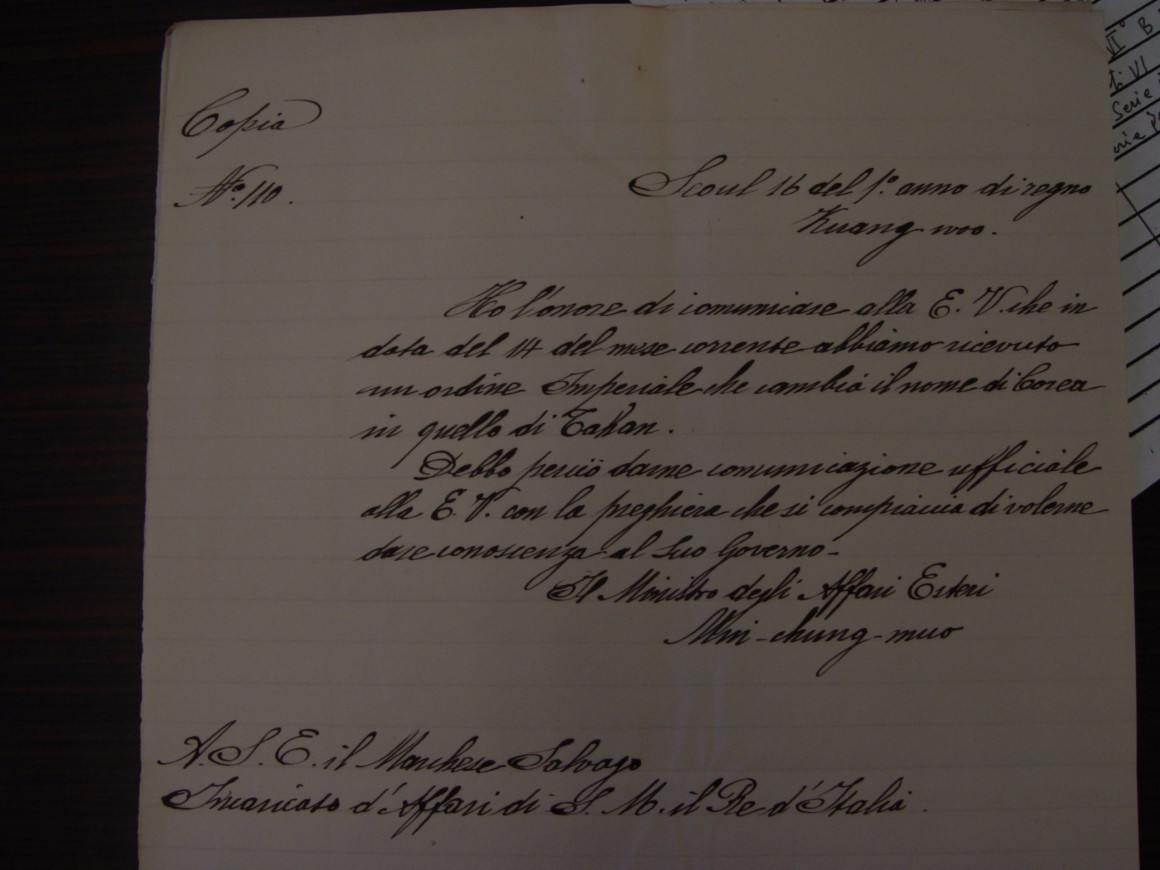 Copia
N.º 110.
Seoul 16 del 1º anno di regno
Kuang-woo.
Ho l'onore di comunicare alla E. V. che in
data del 14 del mese corrente abbiamo ricevuto
un ordine Imperiale che cambia il nome di Corea
in quello di Tahan.
Debbo perciò darne comunicazione ufficiale
alla E. V. con la preghiera che si compiaccia di volerne
dare conoscenza al Suo Governo-
Il Ministro degli Affari Esteri
Min-chung-muo
A. S. E. il Marchese Salvago
Incaricato d'Affari di S. M. il Re d'Italia.
VI B
VI
Serie